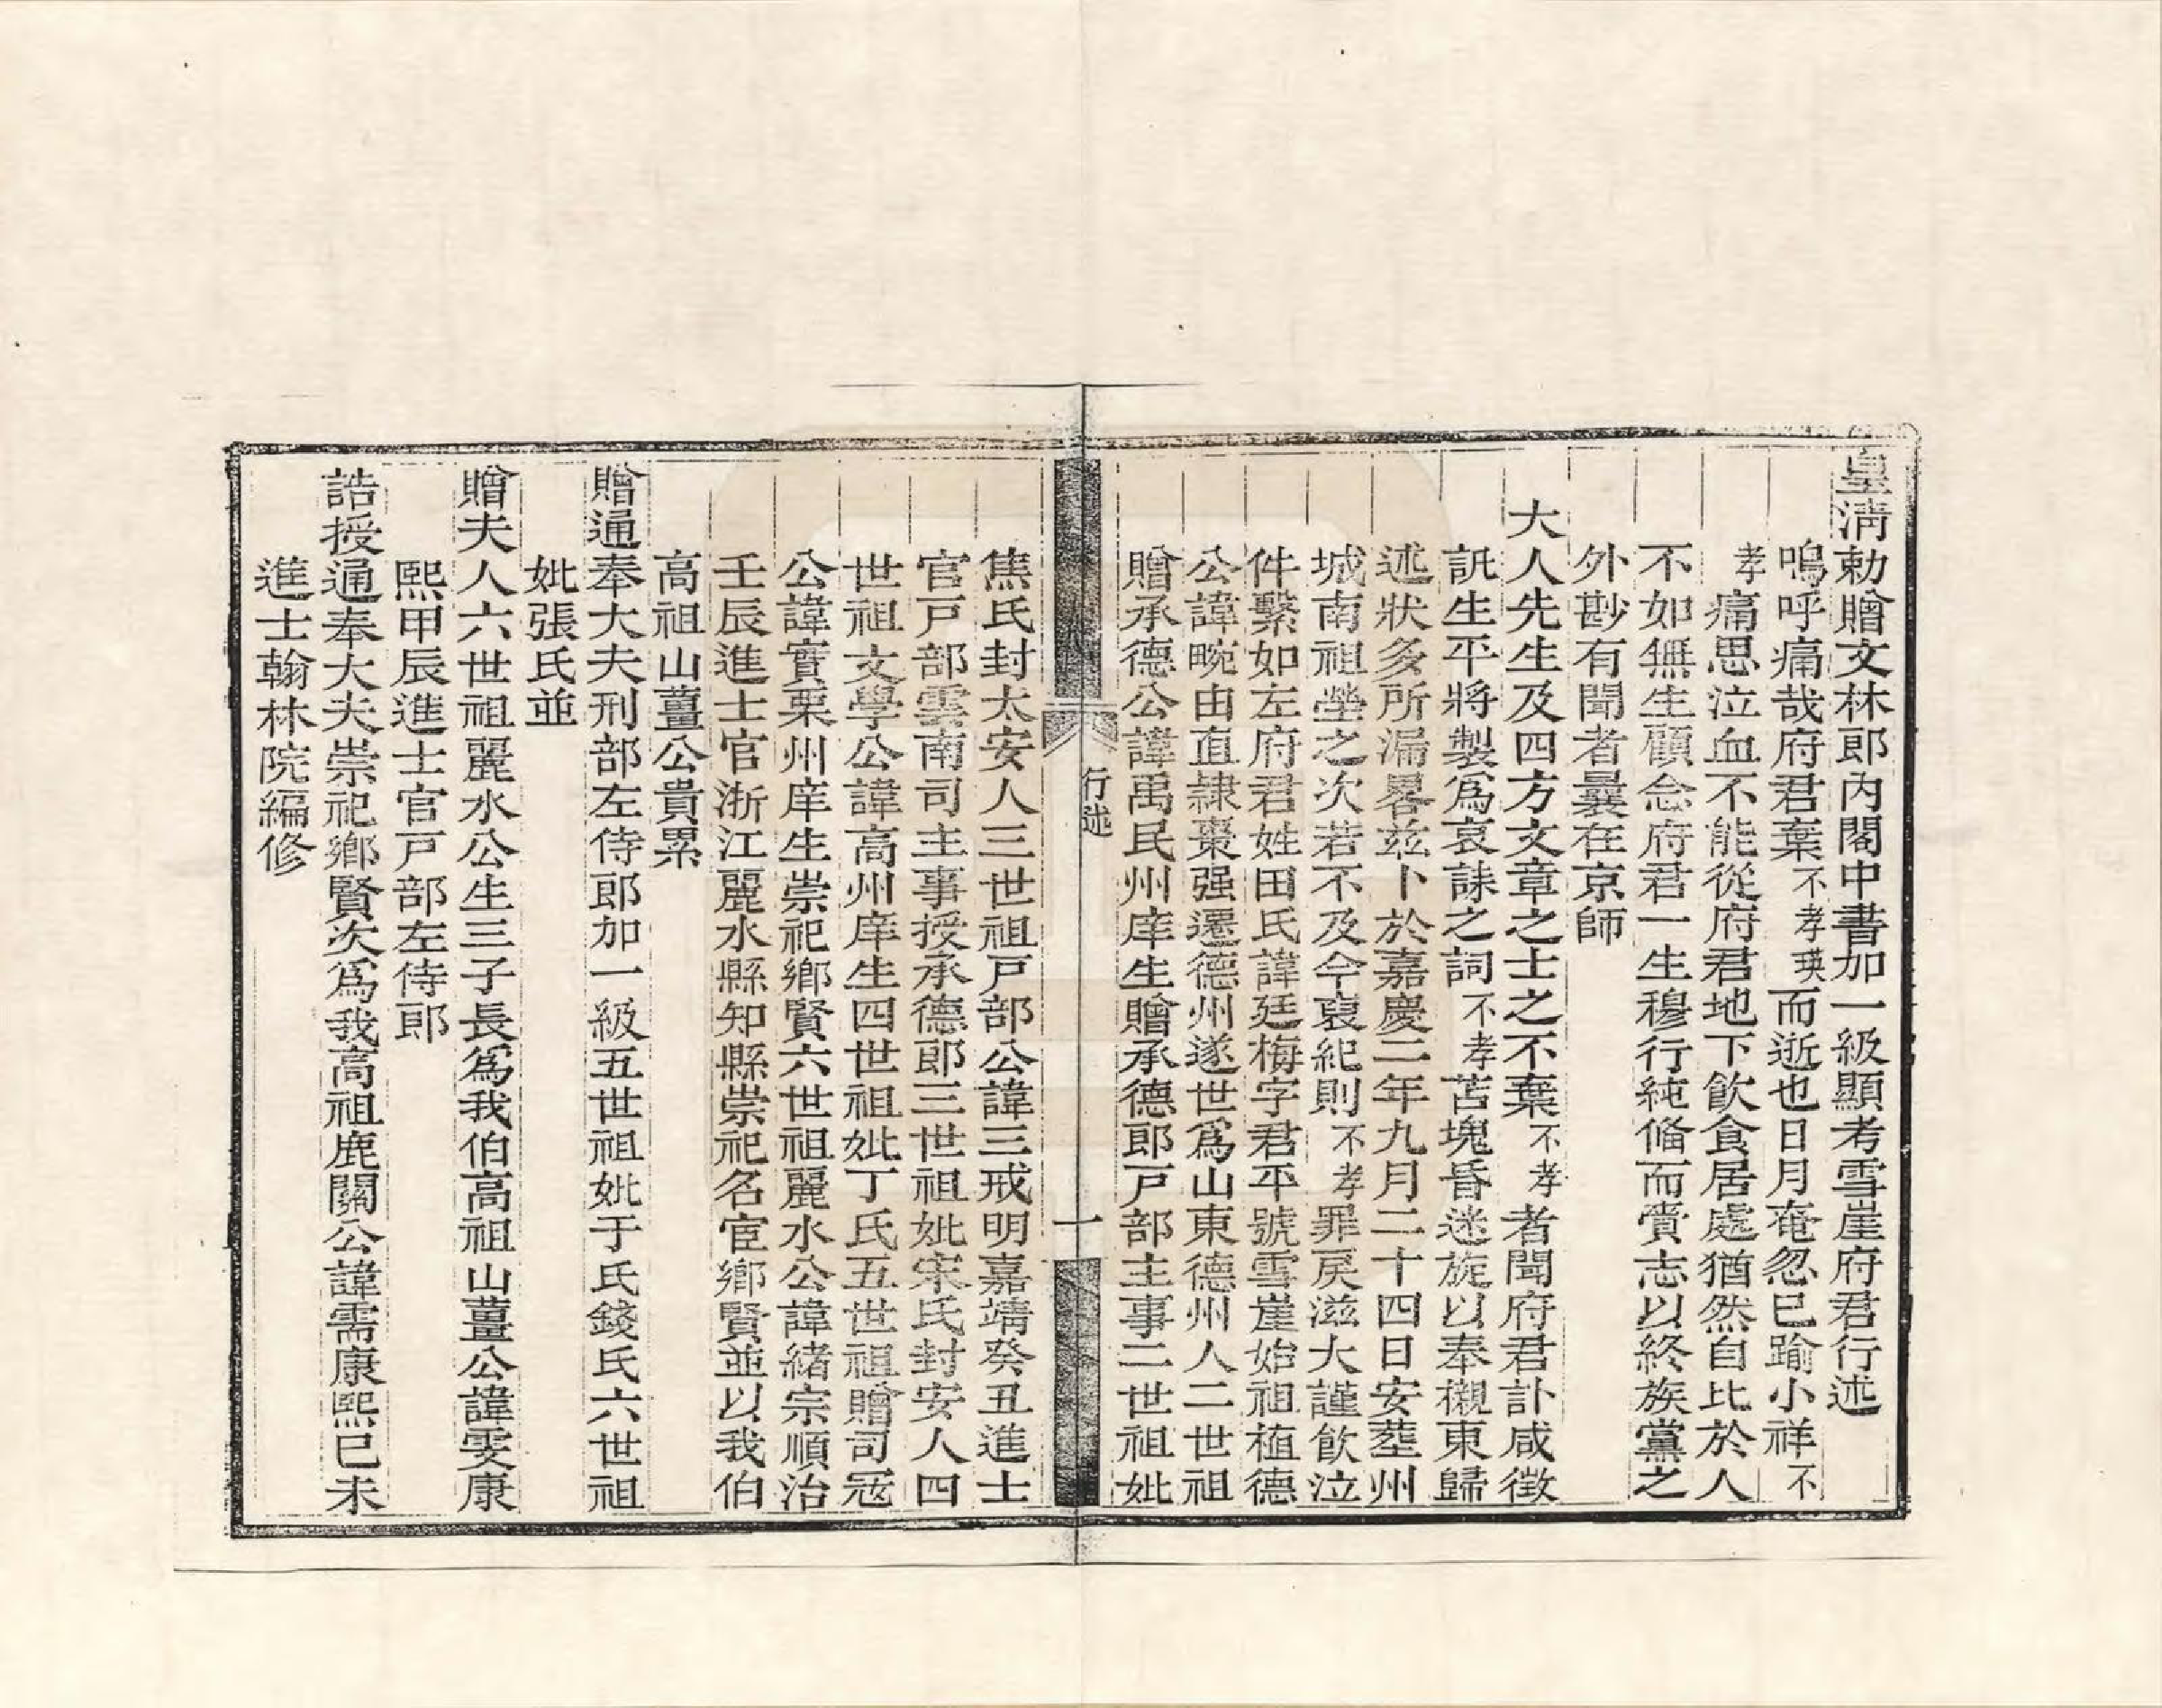 皇淸勅贈文林郎內閣中書加一級顯考雪崖府君行述
嗚呼痛哉府君棄不孝瑛而逝也日月奄忽已踰小祥不
孝痛思泣血不能從府君地下飮食居處猶然自比於人
不如無生顧念府君一生穆行純脩而賫志以終族黨之
外尠有聞者曩在京師
大人先生及四方文章之士之不棄不孝者聞府君訃咸徵
訊生平將製爲哀誄之詞不孝苫塊昏迷旋以奉櫬東歸
述狀多所漏畧茲卜於嘉慶二年九月二十四日安塟州
城南祖塋之次若不及今裒紀則不孝罪戾滋大謹飮泣
件繫如左府君姓田氏諱廷梅字君平號雪崖始祖植德
公諱畹由直隸棗强遷德州遂世爲山東德州人二世祖
贈承德公諱禹民州庠生贈承德郎戸部主事二世祖妣
行述
一
焦氏封太安人三世祖戸部公諱三戒明嘉靖癸丑進士
官戸部雲南司主事授承德郎三世祖妣宋氏封安人四
世祖文學公諱高州庠生四世祖妣丁氏五世祖贈司冦
公諱實栗州庠生崇祀鄉賢六世祖麗水公諱緒宗順治
壬辰進士官浙江麗水縣知縣崇祀名宦鄉賢並以我伯
高祖山薑公貴累
贈通奉大夫刑部左侍郎加一級五世祖妣于氏錢氏六世祖
妣張氏並
贈夫人六世祖麗水公生三子長爲我伯高祖山薑公諱雯康
熙甲辰進士官戸部左侍郎
誥授通奉大夫崇祀鄉賢次爲我高祖鹿關公諱需康熙已未
進士翰林院編修